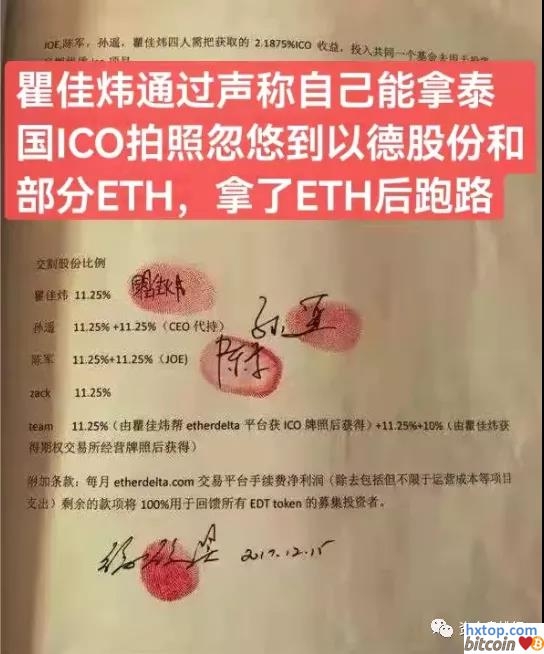 JOE,陈军，孙遥，瞿佳炜四人需把获取的 2.1875%ICO 收益，投入共同一个基金去用于投资
瞿佳炜通过声称自己能拿泰
国ICO拍照忽悠到以德股份和
部分ETH，拿了ETH后跑路
交割股份比例
瞿佳炜 11.25%
孙遥 11.25% +11.25%（CEO 代持）
陈军 11.25%+11.25%（JOE）
zack 11.25%
team 11.25%（由瞿佳炜帮 etherdelta 平台获 ICO 牌照后获得）+11.25%+10%（由瞿佳炜获
得期权交易所经营牌照后获得）
附加条款：每月 etherdelta.com 交易平台手续费净利润（除去包括但不限于运营成本等项目
支出）剩余的款项将 100%用于回馈所有 EDT token 的募集投资者。
2017.12.15
hxtop.com
bitcoin